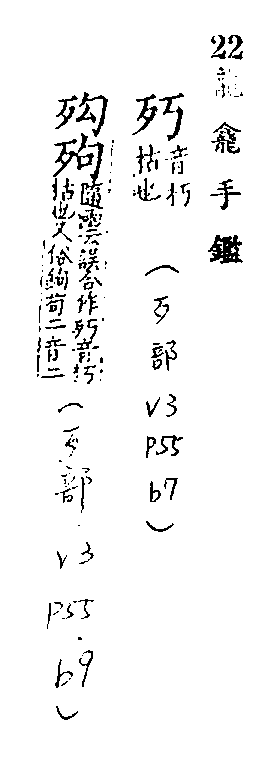 22 龍龕手鑑
歹丂 音朽 枯也 (歹部 v3 P55 b7)
隨䨱誤合作歹丂音朽
枯也又俗鉤苟二音二
(歹部 v3 P55.b9)